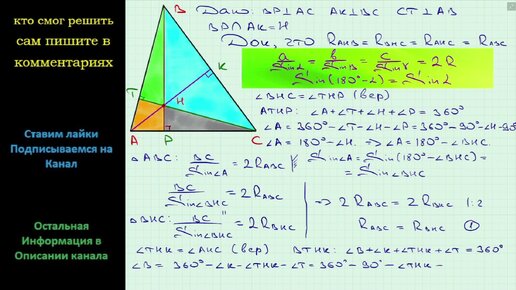 кто смог решить
сам пишите в
комментариях
Ставим лайки
Подписываемся на
Канал
Остальная
Информация в
Описании канала
B
K
T
H
A
P
C
Дано: BP⊥AC AK⊥BC CT⊥AB
BP∩AK=H
Док, что R_AHB=R_BHC=R_AHC=R_ABC
a/Sin α = b/Sin β = c/Sin γ = 2R
Sin(180°-α)=Sin α
∠BHC=∠THP (вер)
ATHP: ∠A+∠T+∠H+∠P=360°
∠A=360°-∠T-∠H-∠P=360°-90°-∠H-90°
∠A=180°-∠H. ⇒ ∠A=180°-∠BHC.
△ABC: BC/Sin∠A = 2R_ABC
Sin∠A=Sin(180°-∠BHC)=
=Sin∠BHC
BC/Sin∠BHC = 2R_ABC
△BHC: BC/Sin∠BHC = 2R_BHC
⇒ 2R_ABC = 2R_BHC |:2
R_ABC = R_BHC ①
∠THK=∠AHC (вер) BTHK: ∠B+∠K+∠THK+∠T=360°
∠B = 360°-∠K-∠THK-∠T=360°-90°-∠THK-